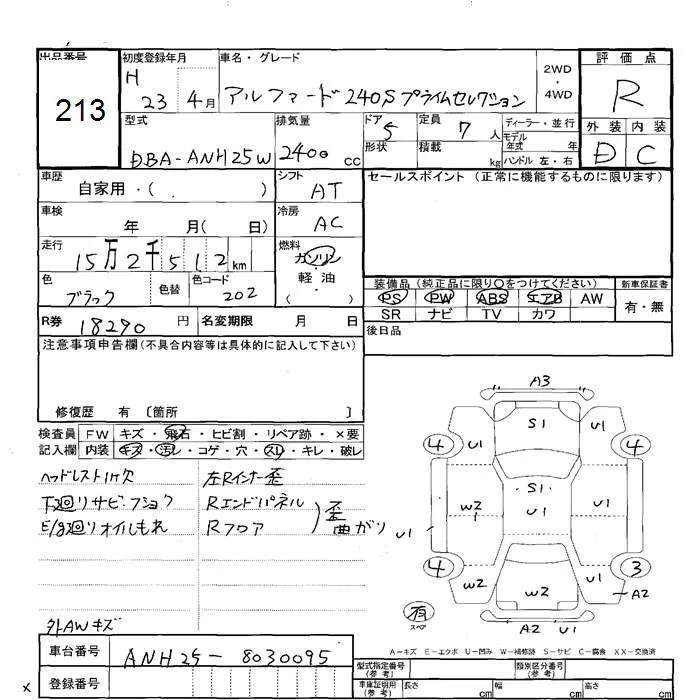 出品番号
213
初度登録年月
H 23 4月
車名・グレード
アルファード240Sプライムセレクション
2WD
・
4WD
評価点
R
外装 内装
D C
型式
DBA-ANH25W
排気量
2400 cc
ドア 5
定員 7 人
ディーラー・並行
モデル
年式 年
形状
積載 kg
ハンドル 左・右
車歴
自家用・( )
シフト
AT
セールスポイント (正常に機能するものに限ります)
車検
年 月( 日)
冷房
AC
走行
15万2千512km
燃料
ガソリン
・
軽・油
( )
色
ブラック
色替
色コード
202
装備品 (純正品に限り〇をつけてください)
新車保証書
PS PW ABS エアB AW
有・無
SR ナビ TV カワ
R券 18290 円
名変期限 月 日
後日品
注意事項申告欄(不具合内容等は具体的に記入して下さい)
修復歴 有 〔箇所 〕
検査員 FW キズ・飛石・ヒビ割・リペア跡・×要
記入欄 内装 キズ・汚レ・コゲ・穴・スリ・キレ・破レ
ヘッドレスト1ケ欠
左Rインナー歪
下廻リサビ・フショク
Rエンドパネル
E/g廻リオイルもれ
Rフロア
歪
曲がり
外AWキズ
A3
S1
U1
U1
4
4
S1
U1
W2
W2
U1
U1
4
3
W2
W2
U1
A2
有
スペア
A2 U1
A-キズ E-エクボ U-凹み W-補修跡 S-サビ C-腐食 XX-交換済
車台番号
ANH25-8030095
登録番号
型式指定番号
(参考)
類別区分番号
(参考)
車庫証明用
(参考)
長さ cm
幅 cm
高さ cm
×